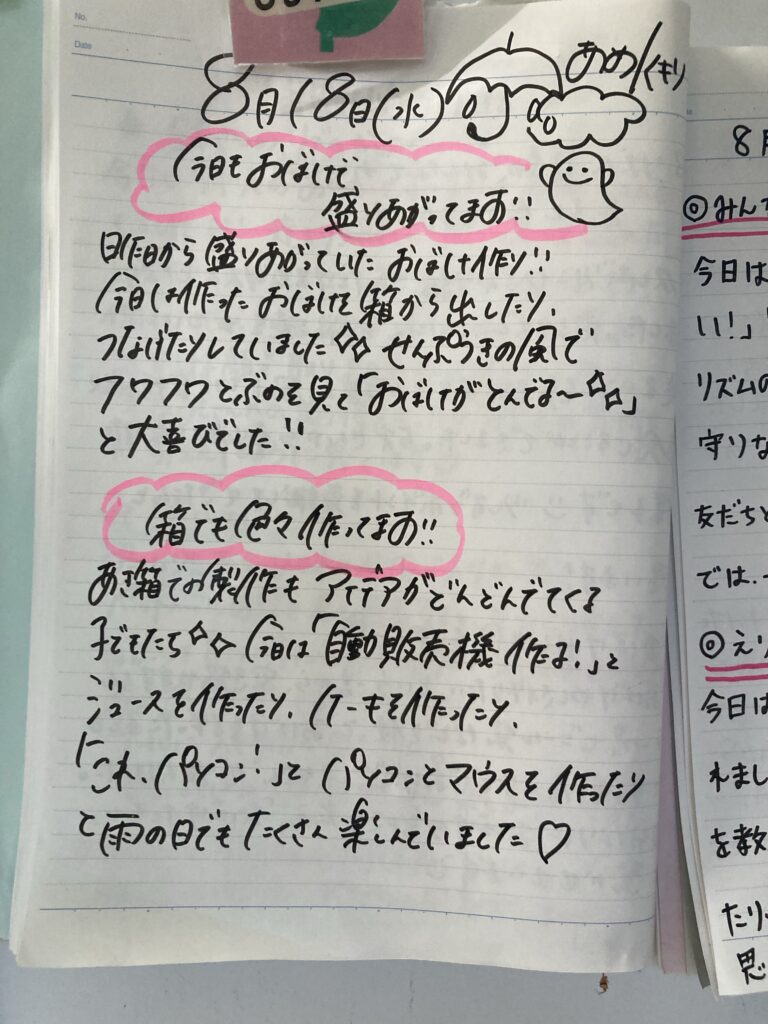 No.
Date
8月18日(水) あめ/くもり
今日もおばけで
盛りあがってます!!
昨日から盛りあがっていたおばけ作り!!
今日は作ったおばけを箱から出したり、
つなげたりしていました✧✧ せんぷうきの風で
フワフワとぶのを見て「おばけがとんでる〜✧✧」
と大喜びでした!!
箱でも色々作ってます!!
あき箱での製作もアイデアがどんどんでてくる
子どもたち✧✧ 今日は「自動販売機作る!」と
ジュースを作ったり、ケーキを作ったり、
「これ、パソコン!」とパソコンとマウスを作ったり
と雨の日でもたくさん楽しんでいました♡
8月
◎みん
今日は
い!」
リズムの
守りな
友だちと
では、
◎えり
今日は
れまし
を教
たり
思